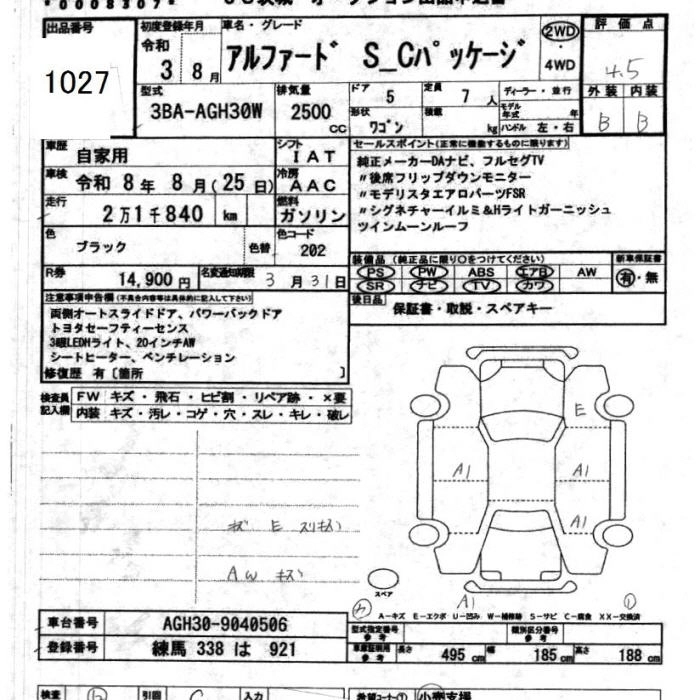 *0008307*
出品番号
1027
初度登録年月
令和
3 8 月
車名・グレード
アルファード S_Cパッケージ
2WD
・
4WD
評価点
4.5
外装 内装
B B
型式
3BA-AGH30W
排気量
2500
CC
ドア 5
定員 7 人
形状 ワゴン
積載 kg
ディーラー・並行
モデル年式 年
ハンドル 左・右
車歴
自家用
シフト
IAT
車検
令和 8年 8月(25日)
冷房
AAC
走行
2万1千840 km
燃料
ガソリン
色
ブラック
色替
色コード
202
R券
14,900 円
名変通知期限
3 月 31日
セールスポイント(正常に機能するものに限ります)
純正メーカーDAナビ、フルセグTV
〃後席フリップダウンモニター
〃モデリスタエアロパーツFSR
〃シグネチャーイルミ&Hライトガーニッシュ
ツインムーンルーフ
装備品 (純正品に限り○をつけてください)
PS PW ABS エアB AW
SR ナビ TV カワ
新車保証書
有・無
後日品
保証書・取説・スペアキー
注意事項申告欄(不具合内容等は具体的に記入して下さい)
両側オートスライドドア、パワーバックドア
トヨタセーフティーセンス
3眼LEDHライト、20インチAW
シートヒーター、ベンチレーション
修復歴 有〔箇所 〕
検査員記入欄
FW キズ・飛石・ヒビ割・リペア跡・×要
内装 キズ・汚レ・コゲ・穴・スレ・キレ・破レ
キズ E スリキズ
AW キズ
E
A1 A1
A1
スペア
A1
A-キズ E-エクボ U-凹み W-補修跡 S-サビ C-腐食 XX-交換済
車台番号
AGH30-9040506
登録番号
練馬 338 は 921
型式指定番号
参考
類別区分番号
参考
車庫証明用
参考
長さ 495 cm
幅 185 cm
高さ 188 cm
検査
引回
入力
希望コーナー① 小売支援